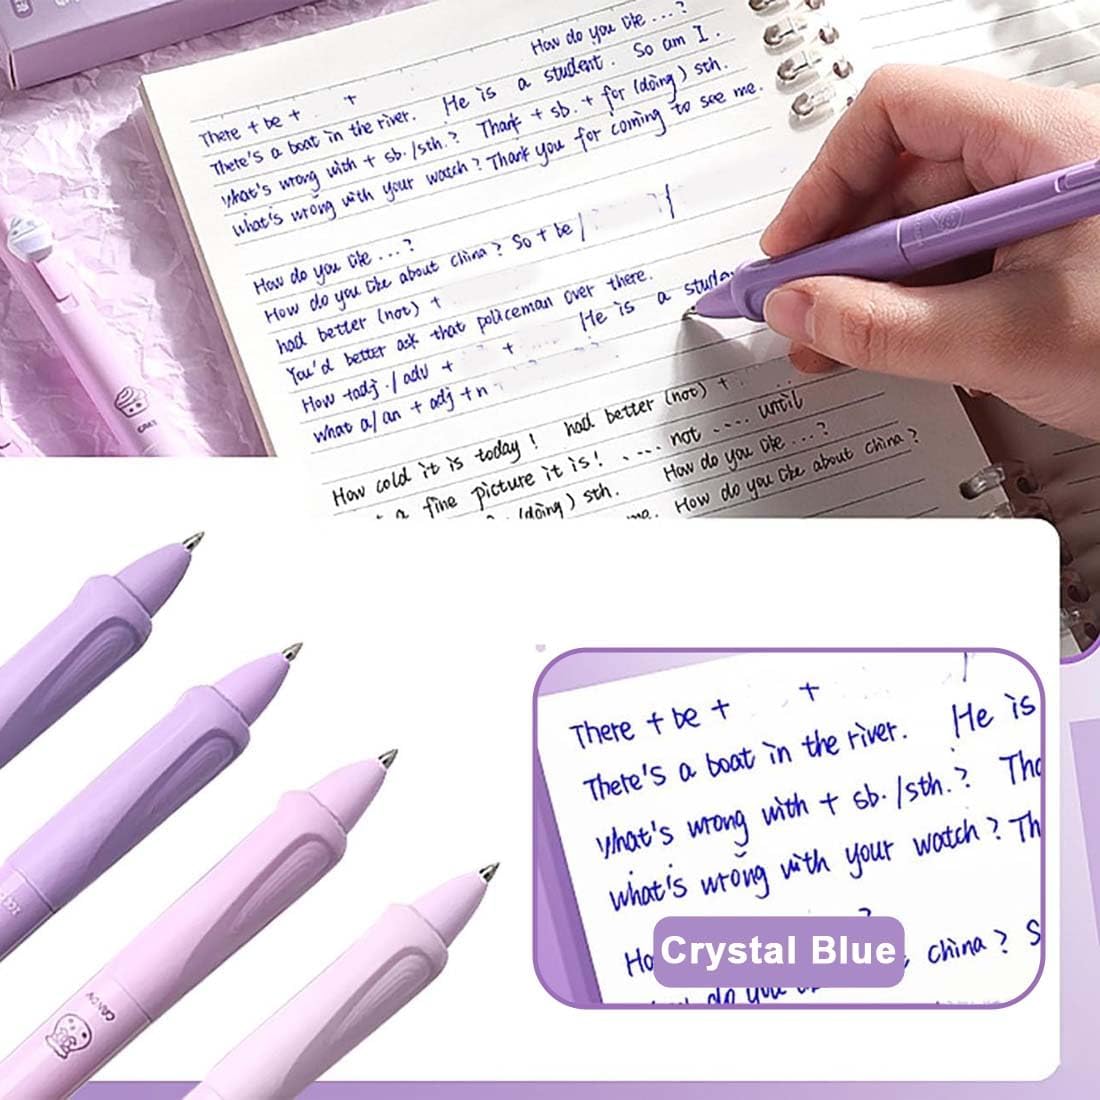 How do you like ...?
There + be +     +     He is a student. So am I.
There's a boat in the river. Thank + sb. + for (doing) sth.
what's wrong with + sb./sth.? Thank you for coming to see me.
what's wrong with your watch?
How do you like ...?
How do you like about china? So + be /     /
had better (not) +
You'd better ask that policeman over there.
How + adj./adv +     +     He is a stude
what a/an + adj + n
How cold it is today! had better (not) +
a fine picture it is! .... not .... until
(doing) sth. How do you like ...?
me. How do you like about china?
CANDY
There + be +     +
There's a boat in the river. He is
what's wrong with + sb./sth.? Tha
what's wrong with your watch? Th
Ho
china? S
do you
Crystal Blue